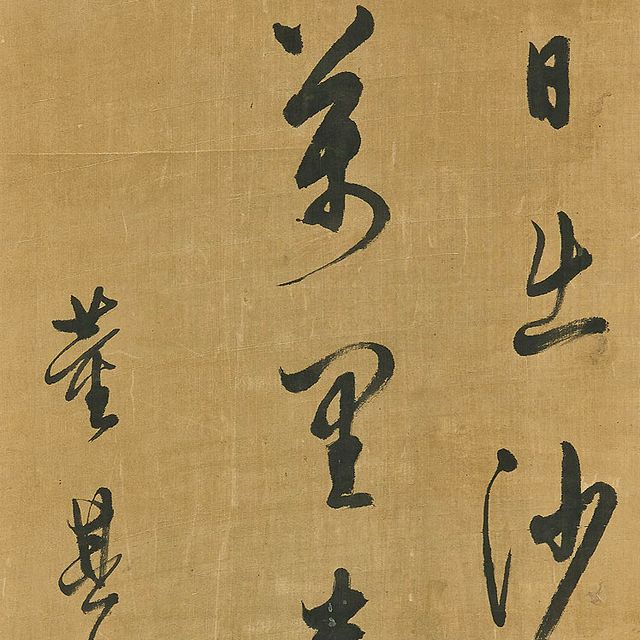 日出沙
萬里
董其